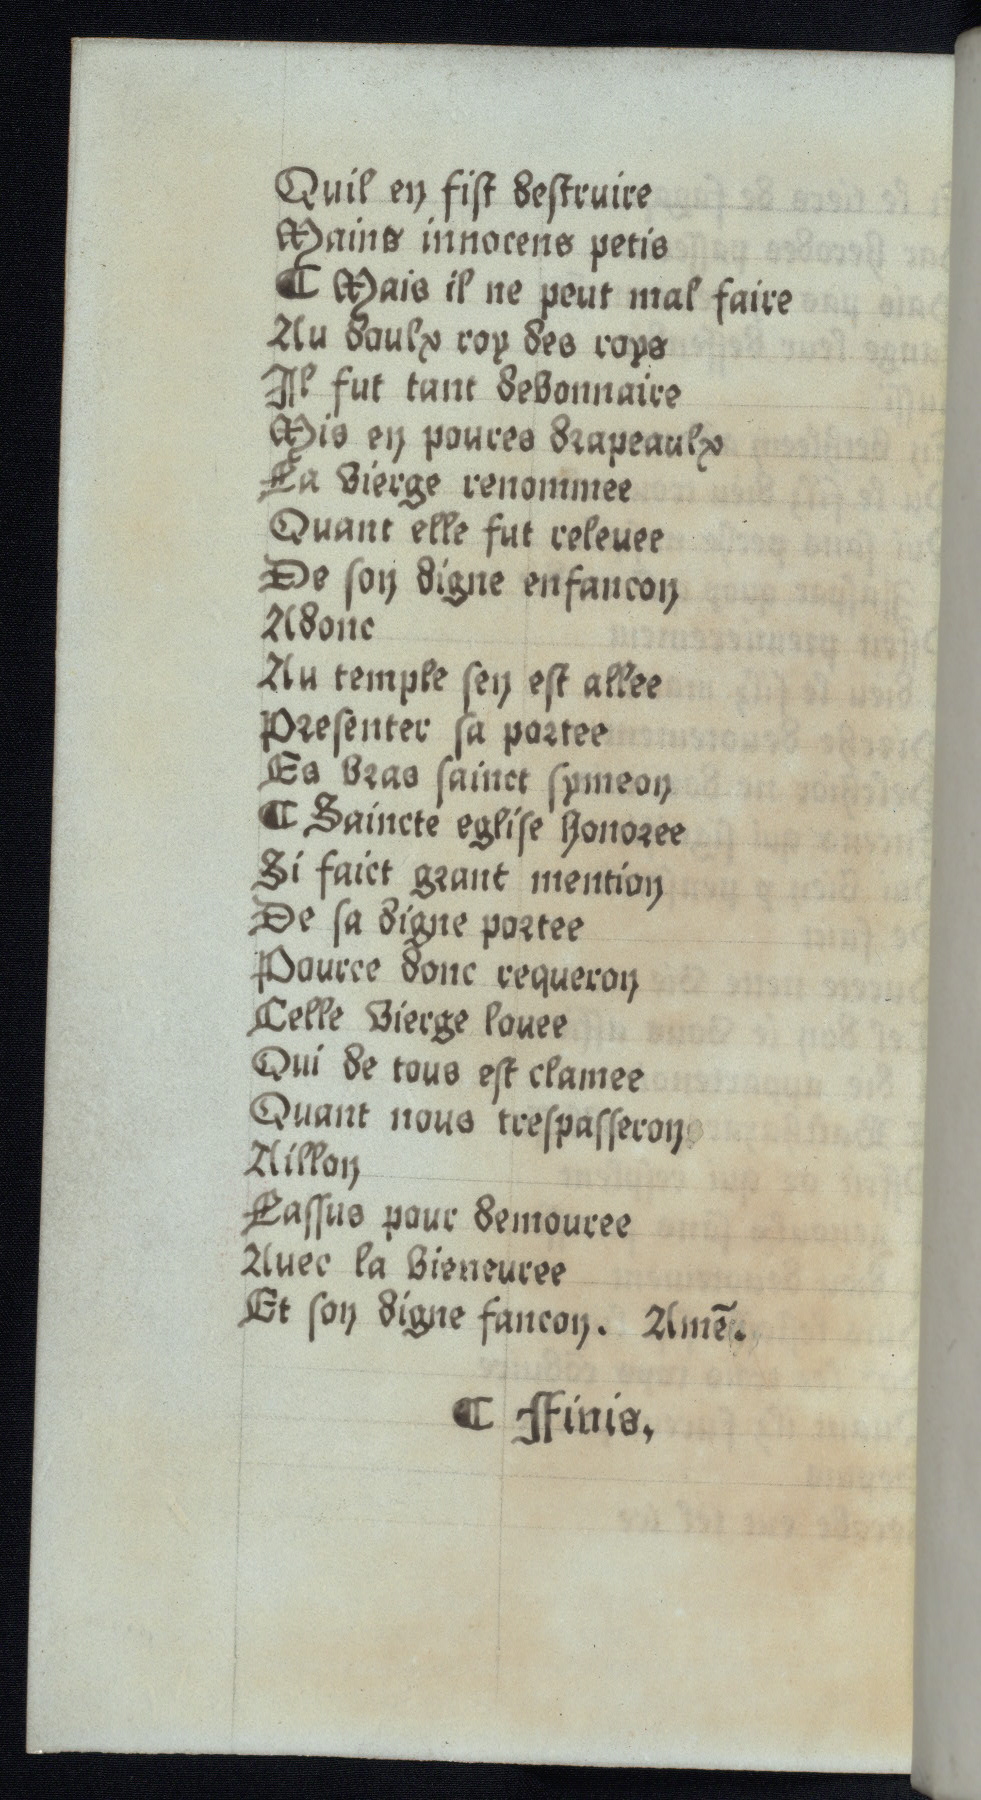 Quil en fist destruire
Mains innocens petis
¶ Mais il ne peut mal faire
Au doulx roy des roys
Il fut tant debonnaire
Mis en poures drapeaulx
La vierge renommee
Quant elle fut releuee
De son digne enfancon
Adonc
Au temple sen est allee
Presenter sa portee
Es bras sainct symeon
¶ Saincte eglise honoree
Si faict grant mention
De sa digne portee
Pource donc requeron
Celle vierge louee
Qui de tous est clamee
Quant nous trespasseron
Aillon
Lassus pour demouree
Auec la bieneuree
Et son digne fancon. Amē.
¶ Ffinis,